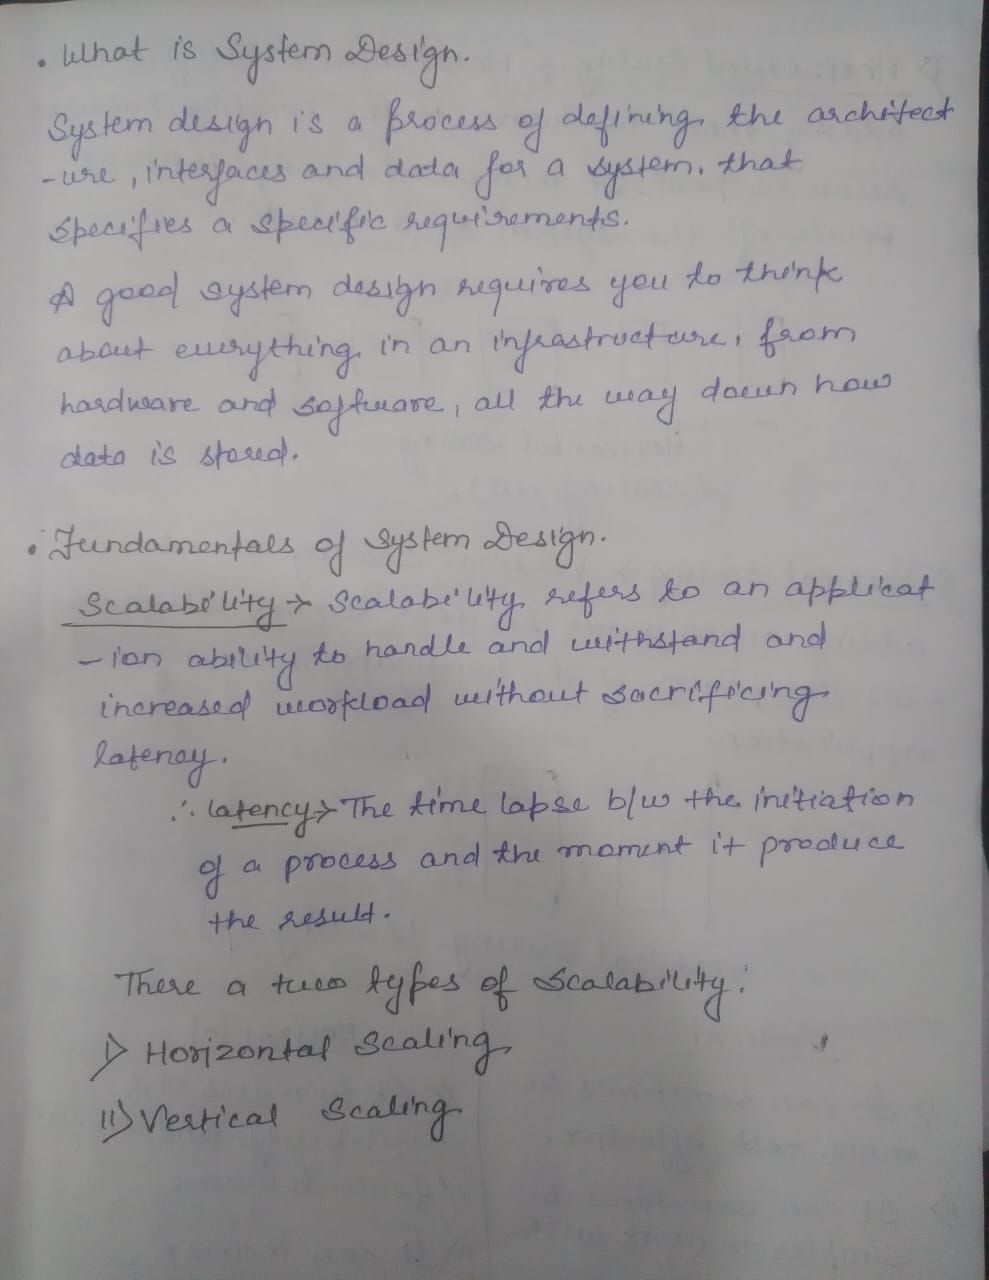 . What is System Design.
System design is a process of defining the architect
-ure, interfaces and data for a system. that
specifies a specific requirements.
A good system design requires you to think
about everything in an infrastructure, from
hardware and software, all the way down how
data is stored.
. Fundamentals of System Design.
Scalability → Scalability refers to an applicat
-ion ability to handle and withstand and
increased workload without sacrificing
latency.
∴ latency → The time lapse b/w the initiation
of a process and the moment it produce
the result.
There a two types of Scalability:
i) Horizontal Scaling
ii) Vertical Scaling